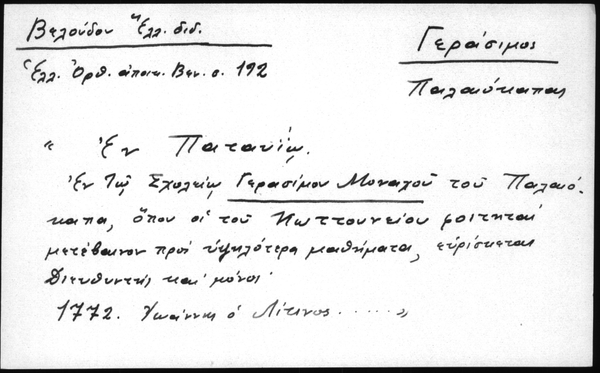 Βελούδου Ἕλλ. διδ.
Ἑλλ. Ὀρθ. ἀποικ. Βεν. σ. 192
Γεράσιμος
Παλαιόκαπας
" Ἐν Παταυίῳ.
Ἐν Τῷ Σχολείῳ Γερασίμου Μοναχοῦ τοῦ Παλαιό-
καπα, ὅπου οἱ τοῦ Κωττουνείου φοιτηταί
μετέβαινον πρός ὑψηλότερα μαθήματα, εὑρίσκεται
Διευθυντής καί μόνος
1772. Ἰωάννης ὁ Λίτινος ..... "